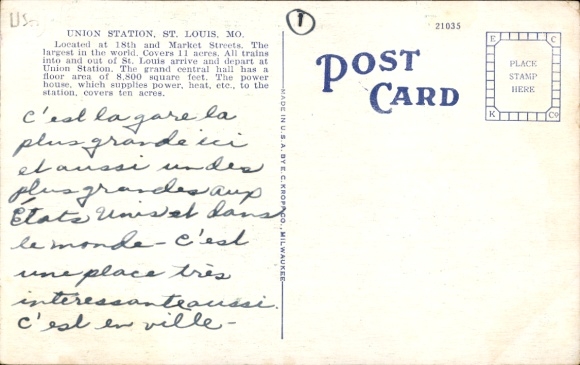 US
1
21035
UNION STATION, ST. LOUIS, MO.
Located at 18th and Market Streets. The
largest in the world. Covers 11 acres. All trains
into and out of St. Louis arrive and depart at
Union Station. The grand central hall has a
floor area of 8,800 square feet. The power
house, which supplies power, heat, etc., to the
station, covers ten acres.
c'est la gare la
plus grande ici
et aussi un des
plus grandes aux
États Unis et dans
le monde - C'est
une place très
interessante aussi.
C'est en ville -
MADE IN U.S.A. BY E. C. KROPP CO., MILWAUKEE
POST
CARD
E C
PLACE
STAMP
HERE
K Co